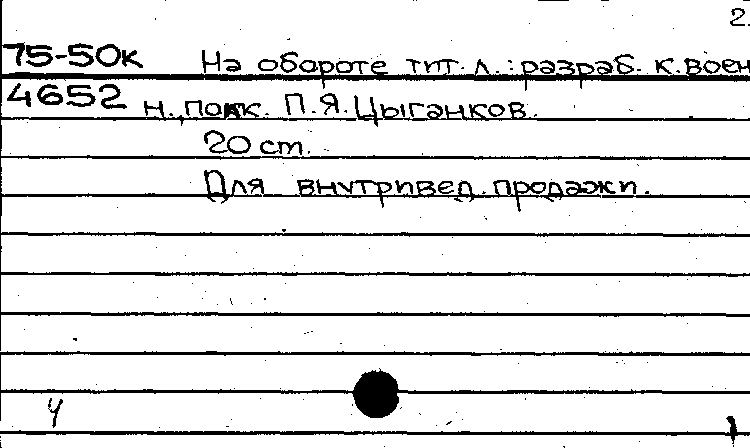 2.
75-50к На обороте тит. л.: разраб. к. воен
4652 н., полк. П.Я. Цыганков.
20 ст.
Для внутривед. продажи.
4